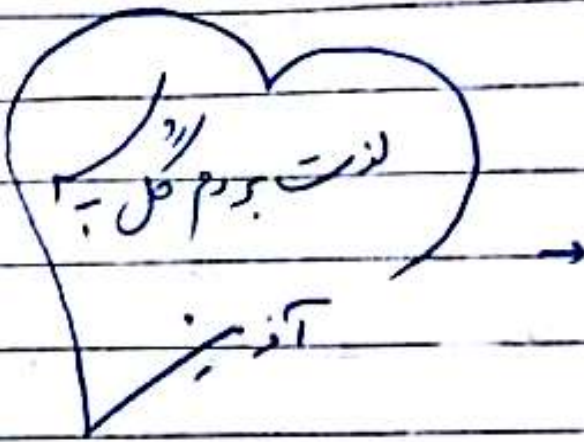 لذت بردم گل پسر
آذین